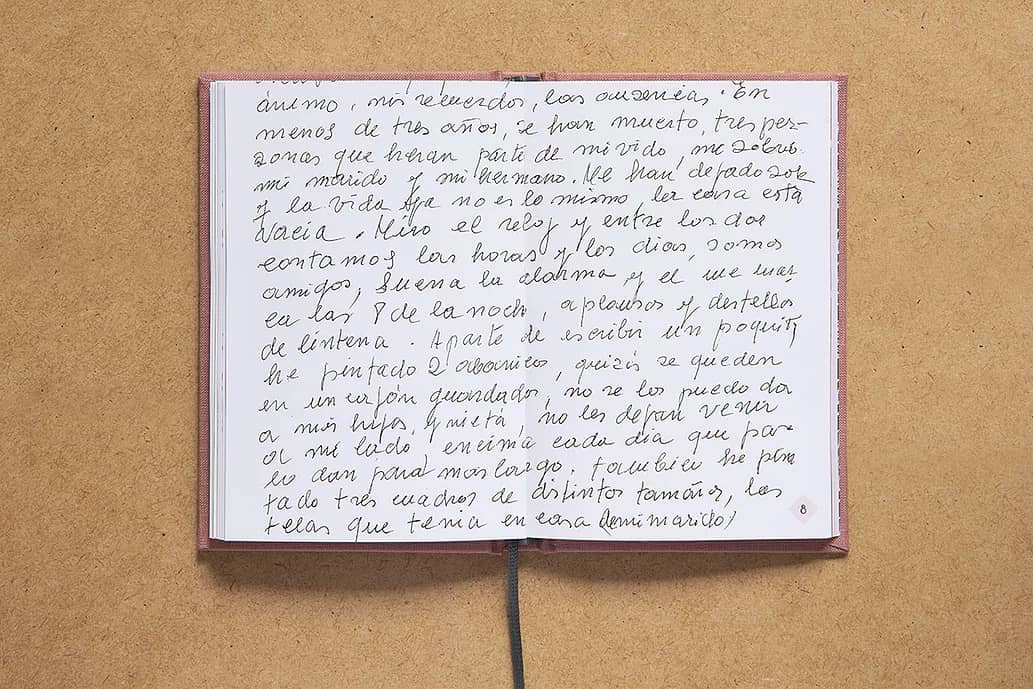 ánimo, mis recuerdos, las ausencias. En
menos de tres años, se han muerto, tres per-
sonas que heran parte de mi vida, me
mi marido y mi hermano. Me han dejado sola
y la vida ya no es lo mismo, la casa está
vacia. Miro el reloj y entre los dos
contamos las horas y los dias, somos
amigos, suena la alarma y el me mar
ca las 8 de la noche, aplausos y destellos
de lintena. Aparte de escribir un poquito
he pintado 2 abanicos, quizás se queden
en un cajón guardados, no se los puedo da
a mis hijos, y nietá, no les dejan venir
a mi lado, encima cada dia que pa-
lo dan para mas largo. tambien he pin
tado tres cuadros de distintos tamaños, las
telas que tenia en casa (de mi marido)
8